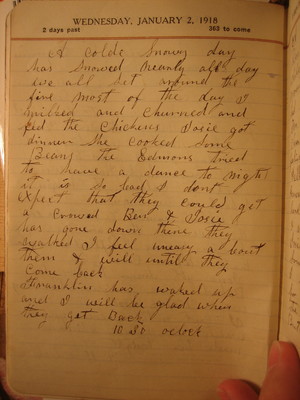 WEDNESDAY, JANUARY 2, 1918
2 days past 363 to come
A colde Snowy day
has Snowed all day
we all Set around the
fire most of the day I
milked and Churned and
fed the Chickens Dosie got
dinner She cooked Some
Beans the tried
to have a dance to night
it is So bad I dont
expect that they could get
a Crowed Ben & Dosie
has gone down there they
walked I feel uneasy a bout
them & will until they
Come back
Franklin has waked up
and I will be glad when
they get Back
10 30 oclock